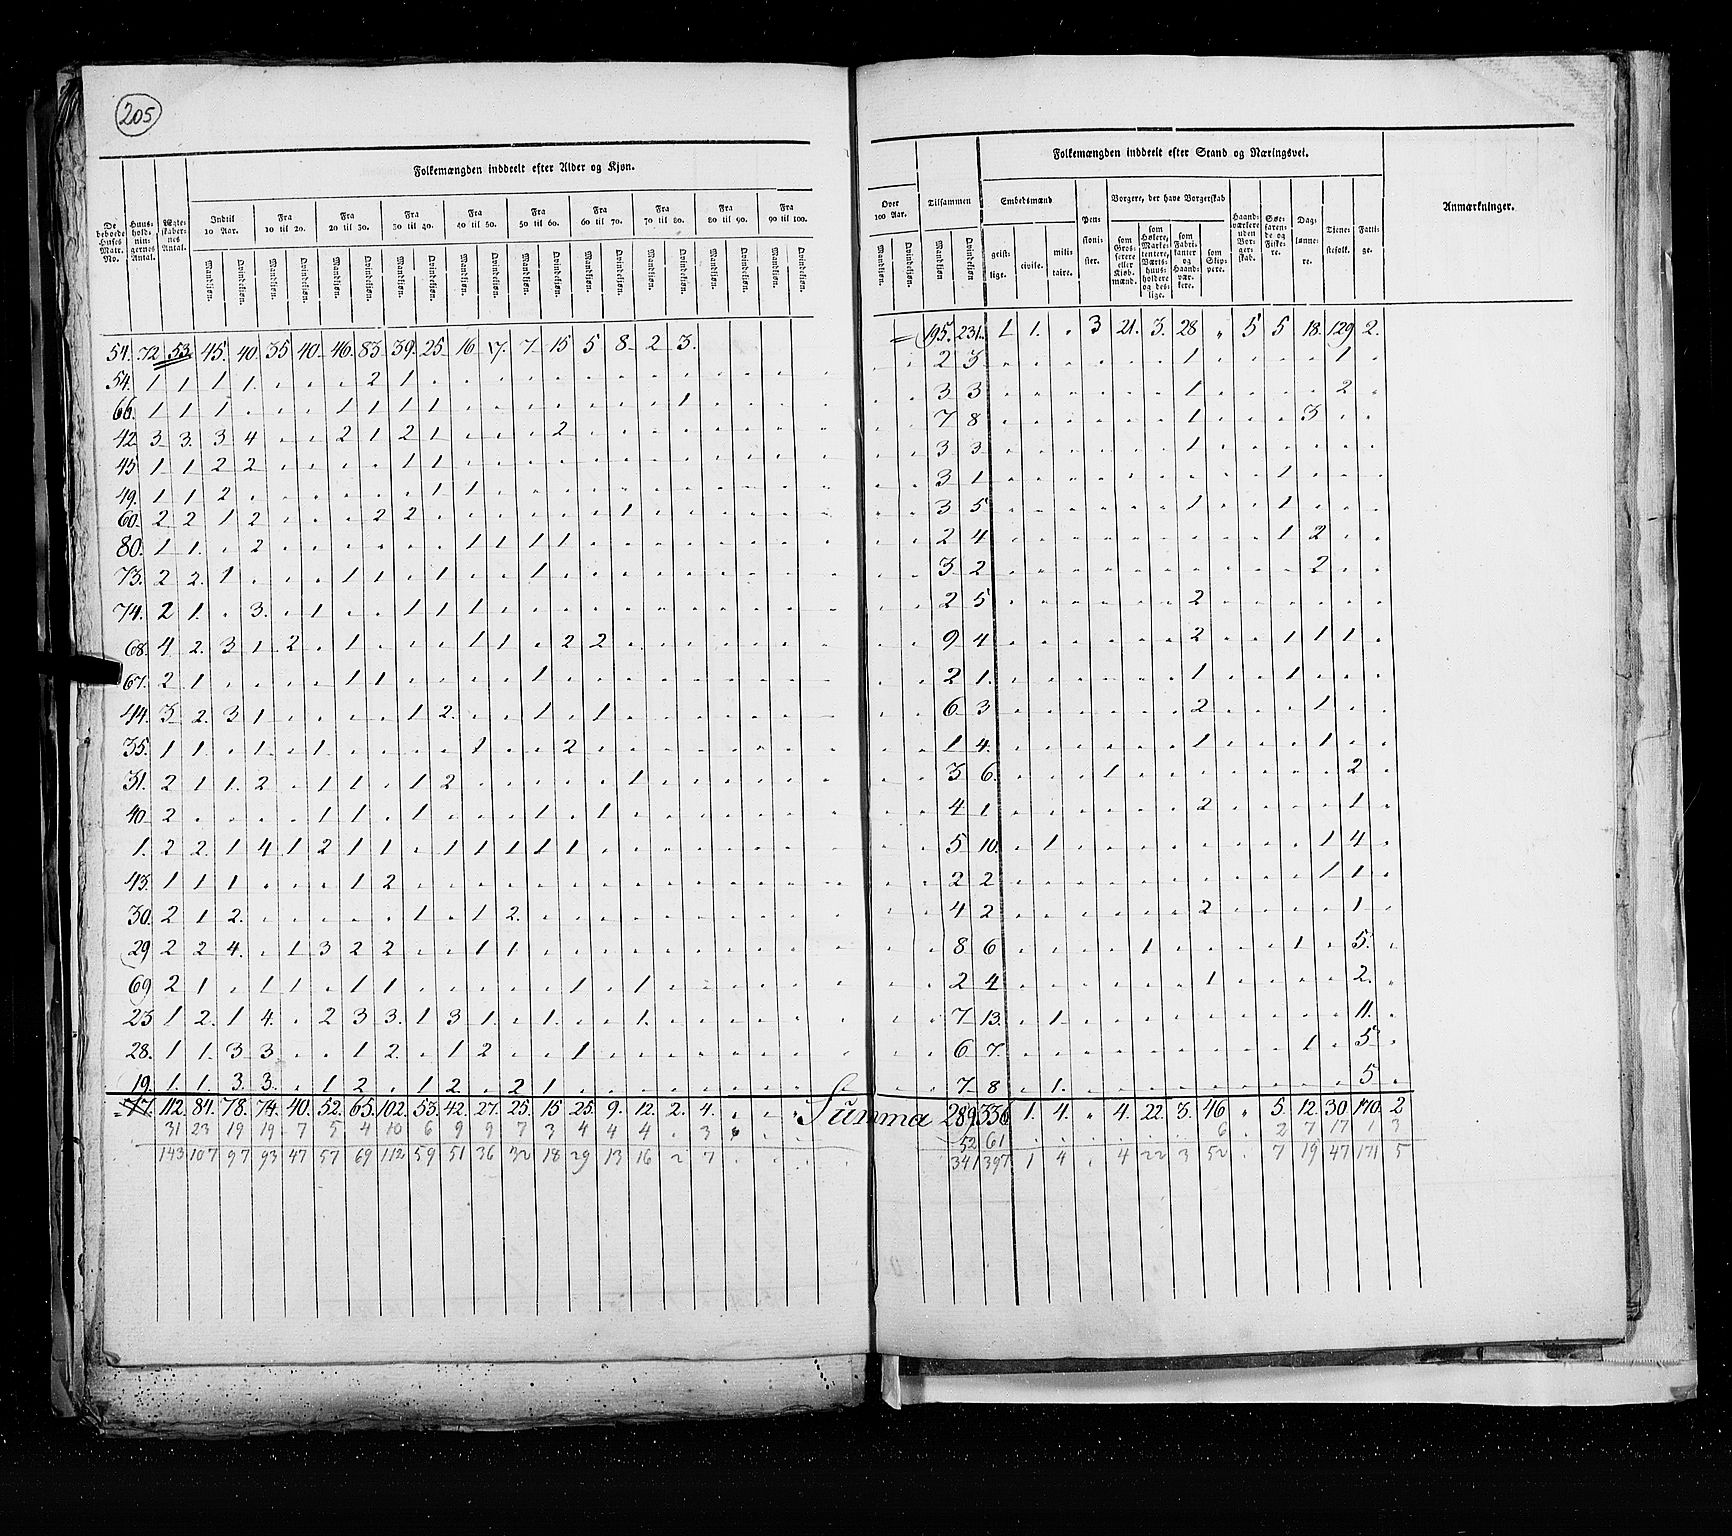 205
Folkemængden inddeelt efter Alder og Kjøn.
Folkemængden inddeelt efter Stand og Næringsvei.
Anmærkninger.
De beboede Huses Matr. No.
Huusholdningernes Antal.
Ægteskabernes Antal.
Indtil 10 Aar.
Fra 10 til 20.
Fra 20 til 30.
Fra 30 til 40.
Fra 40 til 50.
Fra 50 til 60.
Fra 60 til 70.
Fra 70 til 80.
Fra 80 til 90.
Fra 90 til 100.
Over 100 Aar.
Tilsammen
Mandkjøn. Qvindekjøn.
Embedsmænd
geistlige. civile. militaire.
Pensionister.
Borgere, der have Borgerskab
som Grosserere eller Kiøbmænd.
som Høkere, Marketentere, Værtshuusholdere og deslige.
som Fabrikanter og Haandværkere.
som Skippere.
Haandværkere uden Borgerskab.
Søefarende og Fiskere.
Daglønnere.
Tienestefolk.
Fattige.
54. 72 53 45. 40. 35 40. 46. 83 39. 25 16 17. 7. 15 5 8. 2 3. = 195. 231. 1 1. „ 3 21. 3. 28 „ 5 5 18. 129 2.
54. 1 1 1 1 . . . . 2 1 . . . . . . . . . . . . . . 2 3 . . . . . . 1 . . . . 1 .
66. 1 1 1 . . . 1 1 1 1 . . . . . . . 1 . . . . . . 3 3 . . . . . . 1 . . . . 2 .
42 3 3. 3 4 . . 2 1 2 1 . . . 2 . . . . . . . . . . 7 8 . . . . . . 1 . . . 3 . .
45 1 1 2 2 . . . . 1 1 . . . . . . . . . . . . . . 3 3 . . . . . . 1 . . . . . .
49. 1 1 2 . . . . . . 1 1 . . . . . . . . . . . . . 3 1 . . . . . . . . . 1 . . .
60. 2 2 1 2 . . . 2 2 . . . . . . 1 . . . . . . . . 3 5 . . . . . . 1 . . 1 . . .
80. 1 1. . 2 . . . . . . 1 1 1 1 . . . . . . . . . . 2 4 . . . . . . . . . 1 2 . .
73. 2 2. 1 . . . 1 1 . 1 . . 1 . . . . . . . . . . . 3 2 . . . . . . . . . . 2 . .
74. 2 1. . 3. . 1 . . 1 1 1 . . . . . . . . . . . . . 2 5 . . . . . . 2 . . . . . .
68. 4 2. 3 1 2 . 1 . . . 1 1 . 2 2 . . . . . . . . . 9 4 . . . . . . 2 . . 1 1 1 .
67. 2 1 . . . . 1 1 . . . . 1 . . . . . . . . . . . 2 1. . . . . . . 1 . . 1 . . .
44. 3 2. 3 1 . . . . 1 2. . . 1 . 1 . . . . . . . . . 6 3 . . . . . . 2 . . . 1 . .
35. 1 1. . 1 . 1 . . . . 1 . . 2 . . . . . . . . . . 1 4. . . . . . . 1 . . . 1 . .
31. 2 1 1. 2 . 1 1 . 1 2 . . . . . 1 . . . . . . . . 3 6. . . . . 1 . . . . . . 2 .
40 2 . . . . 1 1 . 1 . . . 1 . 1 . . . . . . . . . 4 1 . . . . . . 2 . . . . 1 .
1. 2 2. 1 4 1 2 1 1 . 1 1 1 1 1 . . . . . . . . . . 5 10. . 1 . . . . . . . . 1 4 .
43. 1 1 1 . . . 1 2 . . . . . . . . . . . . . . . . 2 2 . . . . . . . . . . 1 1 .
30. 2 1 2. . . . . . 1 . 1 2. . . . . . . . . . . . . 4 2 . . . . . . 2 . . . . 1 .
29 2 2 4. . 1 3 2 2 . . 1 1 . . . . . . . . . . . . 8 6 . . . . . 1 . . . 1 . 5. .
69 2 1 . 1 1 . 1 1 . . . . . 1 . 1 . . . . . . . . 2 4 . . . . . . 1 . . . . 2. .
23 1 2. 1 4. . 2 3 3. 1 3 1. . 1. . . 1. . . . . . . . . 7 13. . 1 . . . . . . . . . 11. .
28. 1 1. 3 3 . . 1 2. . 1 2 . . 1 . . . . . . . . . . 6 7. . . . . . . . . . 1 . 5 .
19. 1. 1. 3. 3. . 1 2 . 1 2. . 2 1 . . . . . . . . . . . 7 8 . 1. . . . . . . . . . 5 .
77. 112. 84. 78. 74. 40. 52. 65. 102. 53. 42. 27. 25. 15 25. 9. 12. 2. 4. . . . Summa 289. 336 1. 4. „ 4. 22 3. 46 „ 5. 12. 30 170. 2
31 23 19 19 7 5 4 10 6 9 9 7 3 4 4 4 . 3 . . . 52 61 . . . . . . 6 . 2 7 17 1 3
143 107 97 93 47 57 69 112 59 51 36 32 18 29 13 16 2 7 . . . 341 397 1 4 . 4 22 3 52 . 7 19 47 171 5